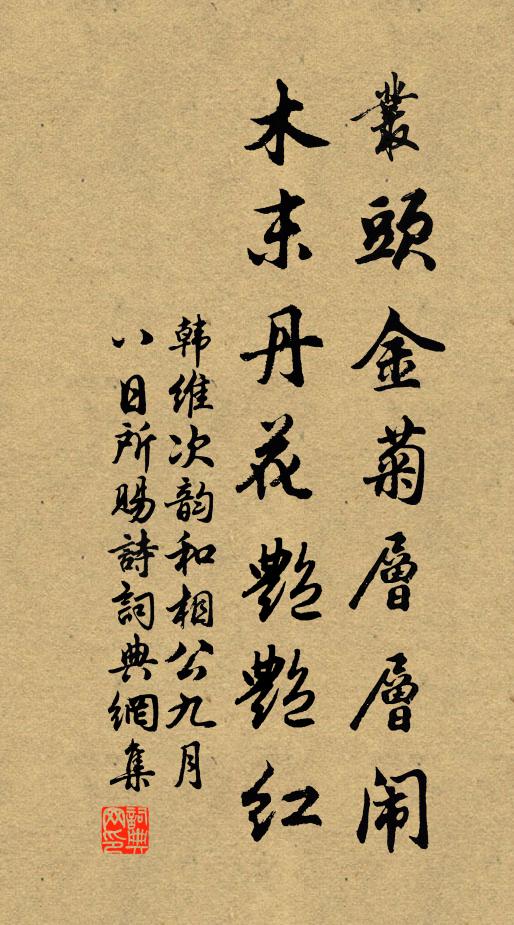 叢頭金菊層層闹
木末丹花艶艶红
韩維次韵和相公九月
八日所賜詩詞典網集
詞典
网印